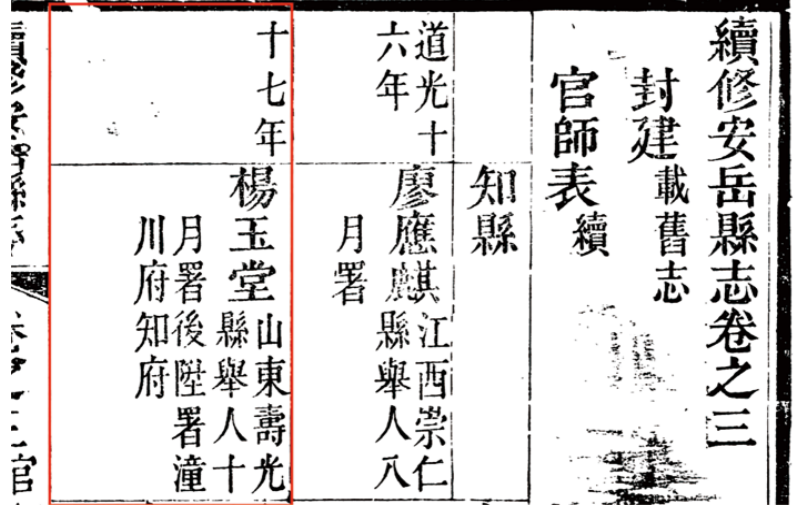 續修安岳縣志卷之三
封建載舊志
官師表續
知縣
道光十
六年
廖應麒江西崇仁
縣舉人八
月署
十七年
楊玉堂山東壽光
縣舉人十
月署後陞署潼
川府知府